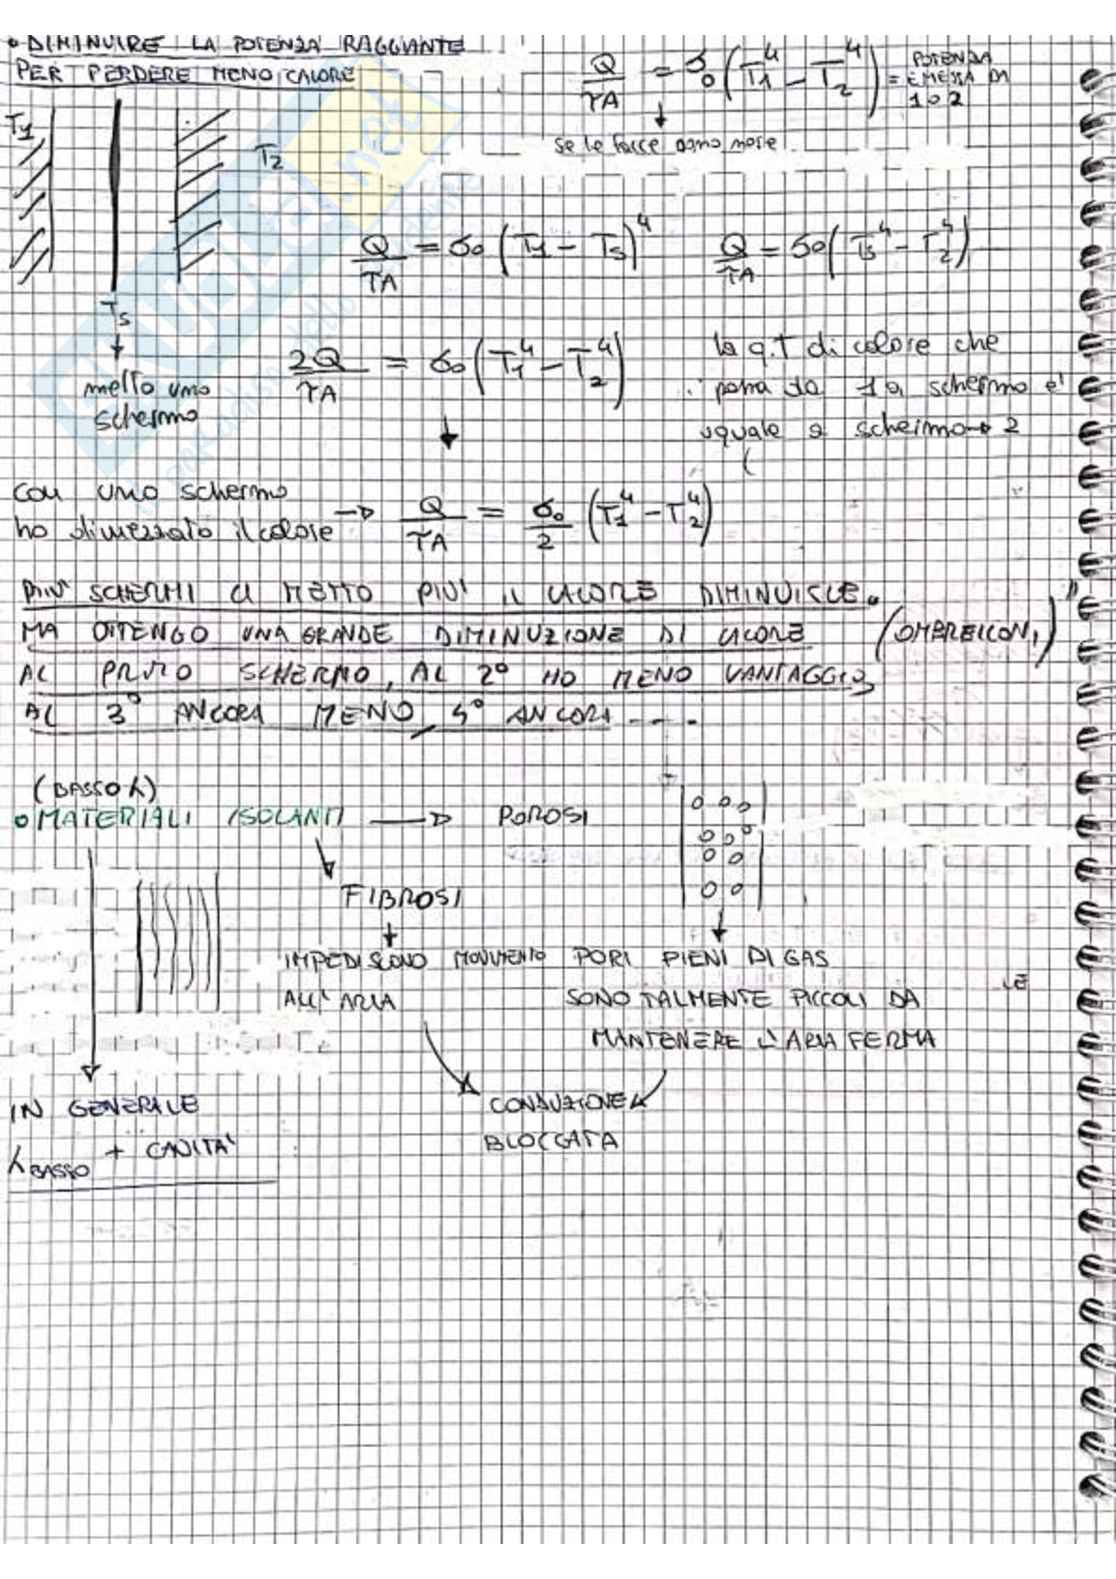 • DIMINUIRE LA POTENZA RAGGIANTE
PER PERDERE MENO CALORE
Q/τA = σ₀ (T₁⁴ - T₂⁴) = POTENZA EMESSA DA 1 o 2
se le facce sono nere
T₁
T₂
Q/τA = σ₀ (T₁ - Ts)⁴
Q/τA = σ₀ (Ts⁴ - T₂⁴)
Ts
metto uno
schermo
2Q/τA = σ₀ (T₁⁴ - T₂⁴)
la q.T di calore che
passa da 1 a schermo è
uguale a schermo → 2
con uno schermo
ho dimezzato il calore → Q/τA = σ₀/2 (T₁⁴ - T₂⁴)
PIU' SCHERMI CI METTO PIU' IL CALORE DIMINUISCE.
MA OTTENGO UNA GRANDE DIMINUZIONE DI CALORE (OMBRELLONI)
AL PRIMO SCHERMO, AL 2° HO MENO VANTAGGIO,
AL 3° ANCORA MENO, 4° ANCORA ----
(BASSO λ)
• MATERIALI ISOLANTI → POROSI
FIBROSI
IMPEDISCONO MOVIMENTO
ALL'ARIA
PORI PIENI DI GAS
SONO TALMENTE PICCOLI DA
MANTENERE L'ARIA FERMA
LE
CONDUZIONE
BLOCCATA
IN GENERALE
λ BASSO + CAVITA'